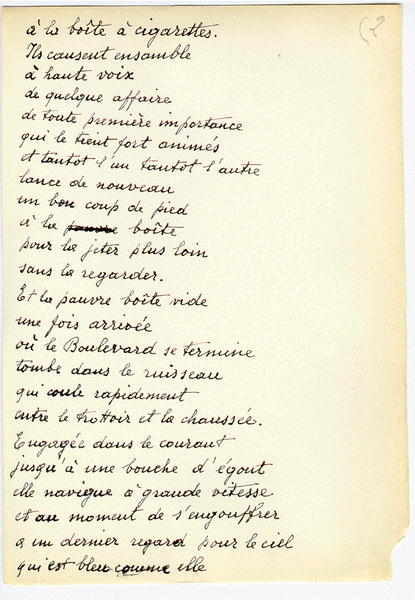 (2
à la boîte à cigarettes.
Ils causent ensamble
à haute voix
de quelque affaire
de toute première importance
qui le tient fort animés
et tantot l'un tantot l'autre
lance de nouveau
un bon coup de pied
à la pauvre boîte
pour la jeter plus loin
sans la regarder.
Et la pauvre boîte vide
une fois arrivée
où le Boulevard se termine
tombe dans le ruisseau
qui coule rapidement
entre le trottoir et la chaussée.
Engagée dans le courant
jusqu'à une bouche d'égout
elle navigue à grande vitesse
et au moment de s'engouffrer
a un dernier regard pour le ciel
qui est bleu comme elle